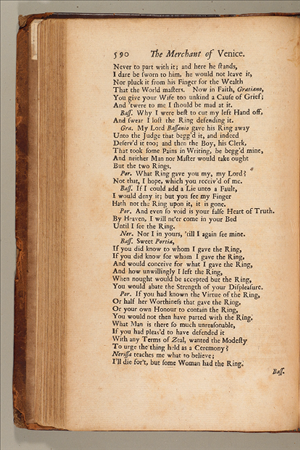 590 The Merchant of Venice.
Never to part with it; and here he stands,
I dare be sworn for him, he would not leave it,
Nor pluck it from his Finger for the Wealth
That the World masters. Now in Faith, Gratiano,
You give your Wife too unkind a Cause of Grief;
And 'twere to me I should be mad at it.
Bass. Why I were best to cut my left Hand off,
And swear I lost the Ring defending it.
Gra. My Lord Bassanio gave his Ring away
Unto the Judge that begg'd it, and indeed
Deserv'd it too; and then the Boy, his Clerk,
That took some Pains in Writing, he begg'd mine,
And neither Man nor Master would take ought
But the two Rings.
Por. What Ring gave you my, my Lord?
Not that, I hope, which you receiv'd of me.
Bass. If I could add a Lie unto a Fault,
I would deny it; but you see my Finger
Hath not the Ring upon it, it is gone.
Por. And even so void is your false Heart of Truth.
By Heaven, I will ne'er come in your Bed
Until I see the Ring.
Ner. Nor I in yours, 'till I again see mine.
Bass. Sweet Portia,
If you did know to whom I gave the Ring,
If you did know for whom I gave the Ring,
And would conceive for what I gave the Ring,
And how unwillingly I left the Ring,
When nought would be accepted but the Ring,
You would abate the Strength of your Displeasure.
Por. If you had known the Virtue of the Ring,
Or half her Worthiness that gave the Ring,
Or your own Honour to contain the Ring,
You would not then have parted with the Ring,
What Man is there so much unreasonable,
If you had pleas'd to have defended it
With any Terms of Zeal, wanted the Modesty
To urge the thing held as a Ceremony?
Nerissa teaches me what to believe;
I'll die for't, but some Woman had the Ring.
Bass.